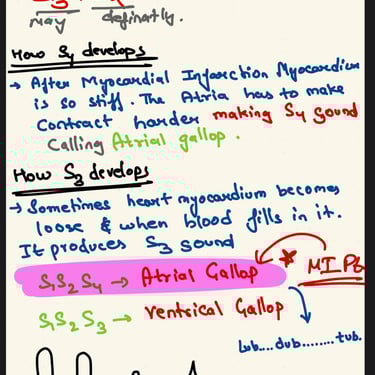 may definatly.
How S4 develops
→ After Myocardial Infarction Myocardium
is so stiff. The Atria has to make
Contract harder making S4 sound
Calling Atrial gallop.
How S3 develops
→ Sometimes heart myocardium becomes
loose & when blood fills in it.
It produces S3 sound
S1S2S4 → Atrial Gallop * MI Pt
S1S2S3 → Ventrical Gallop
Lub....dub........tub.